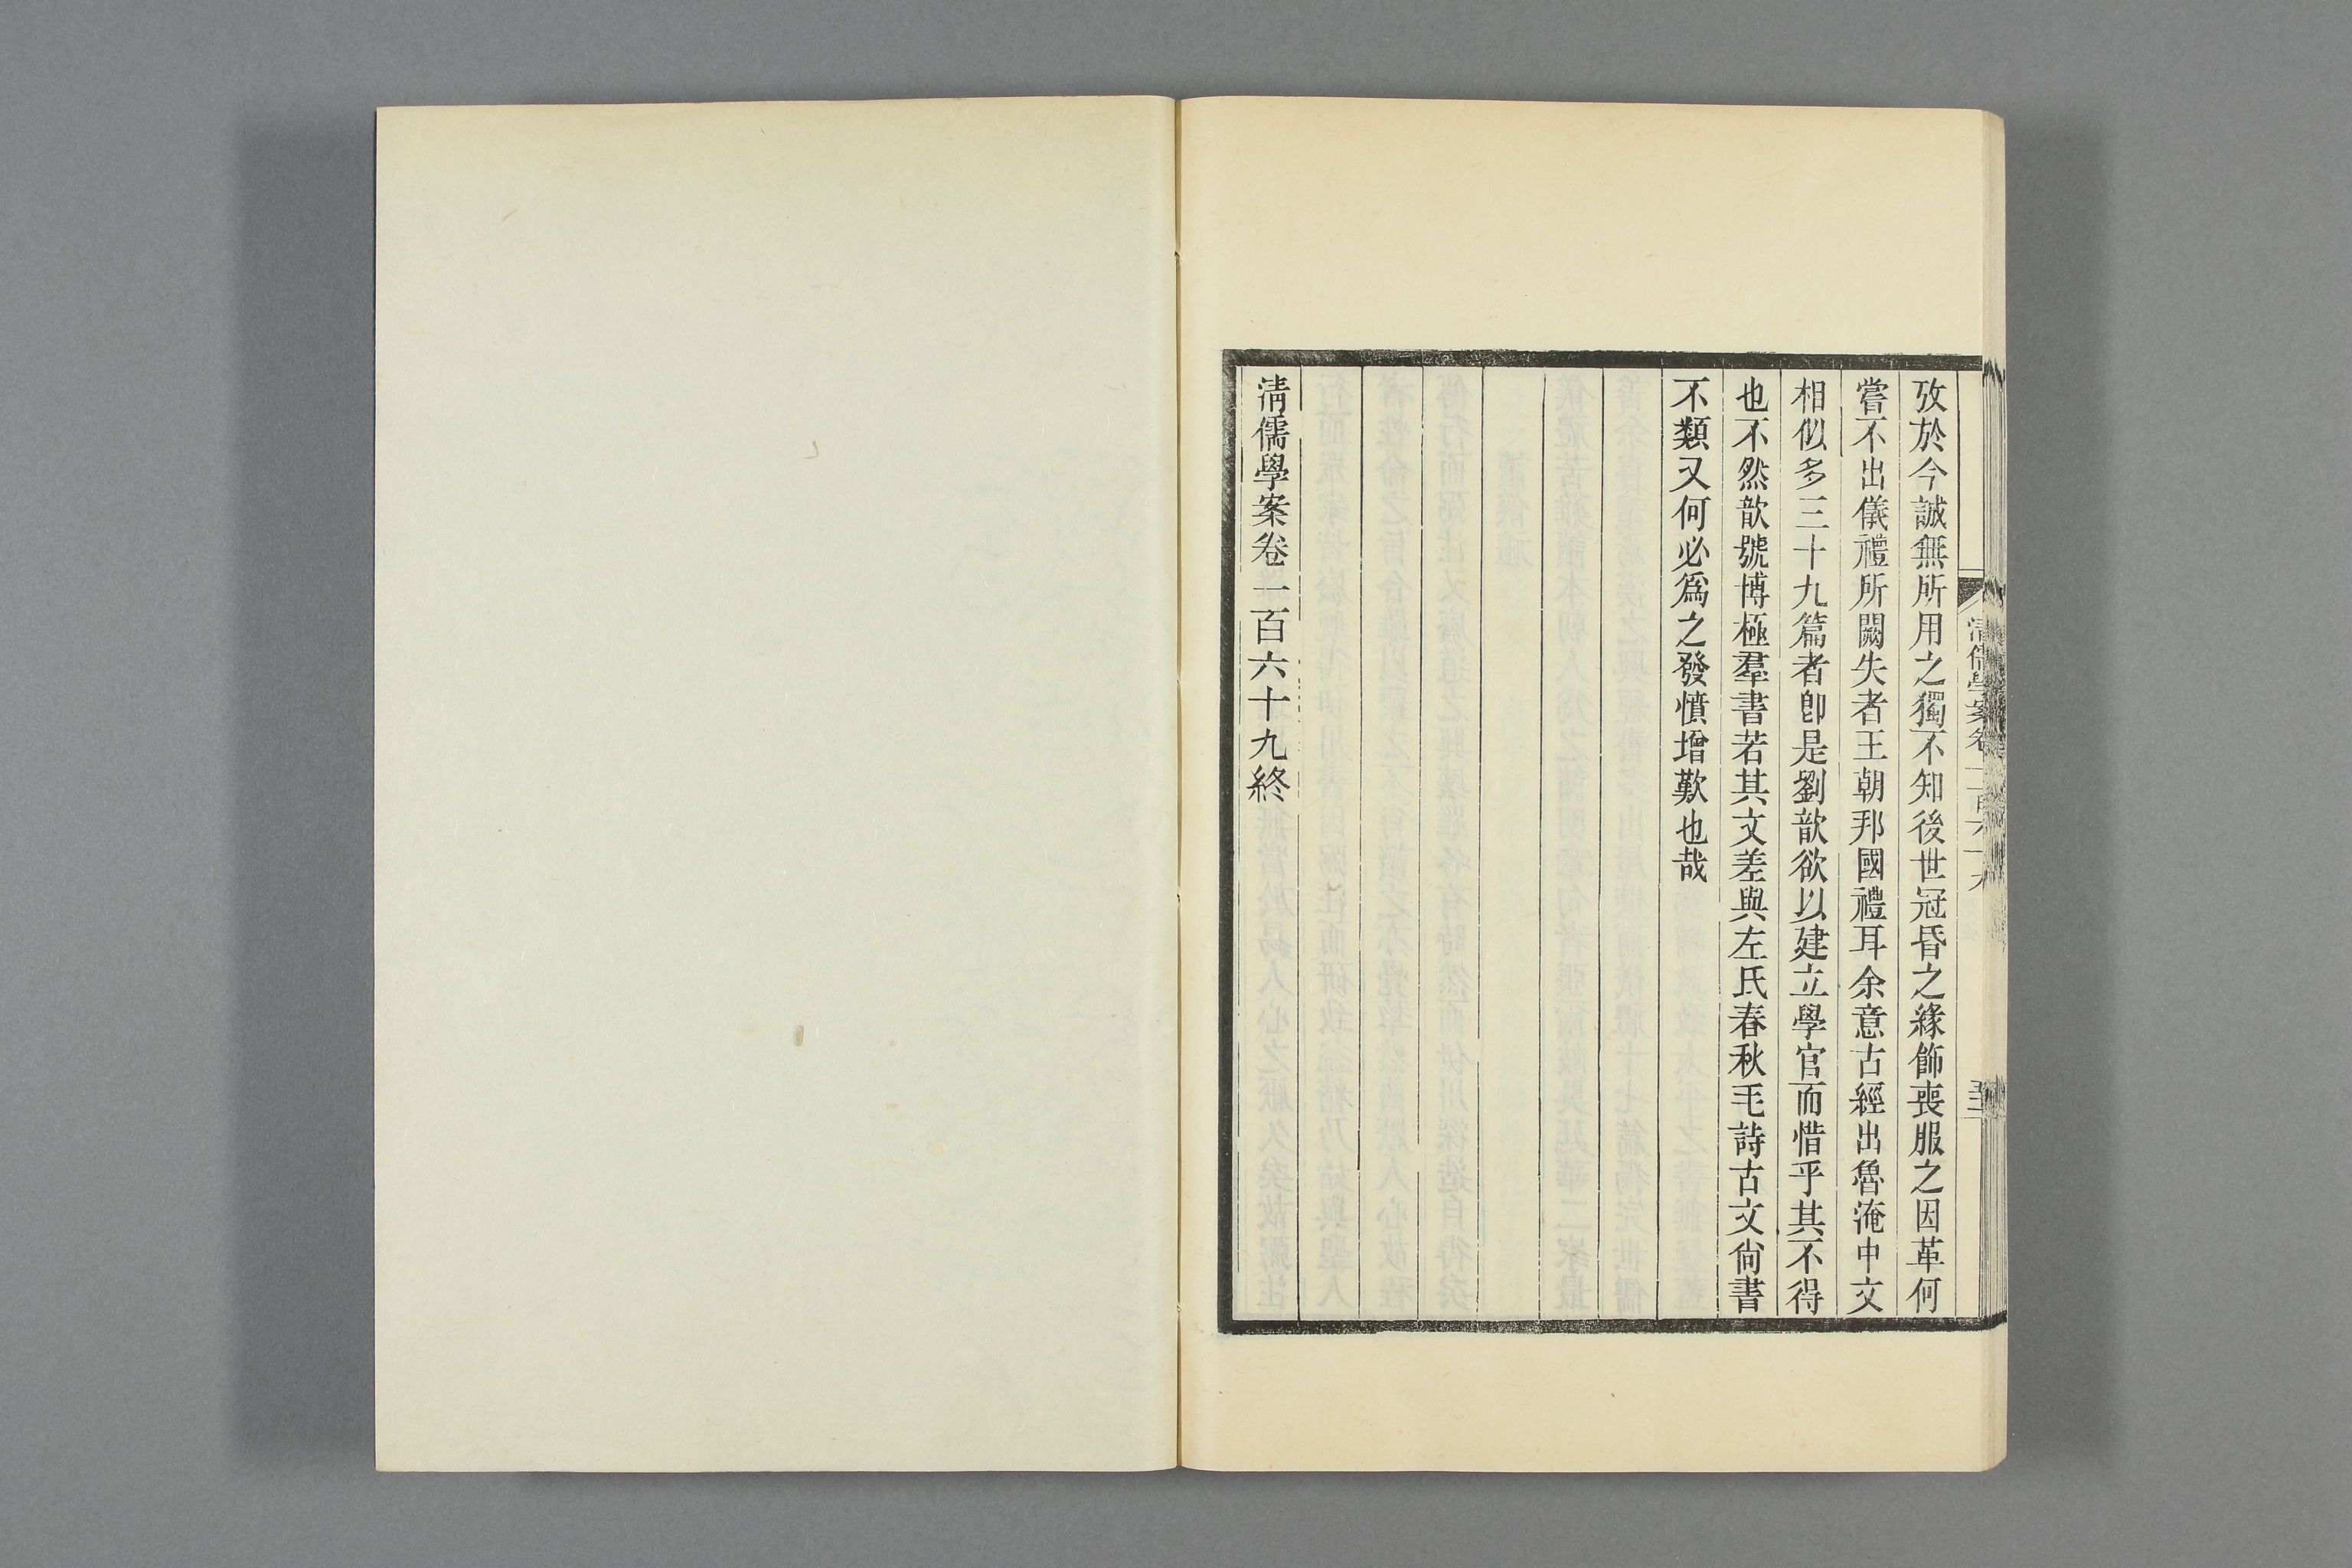 攷於今誠無所用之獨不知後世冠昏之緣飾喪服之因革何
嘗不出儀禮所闕失者王朝邦國禮耳余意古經出魯淹中文
相似多三十九篇者卽是劉歆欲以建立學官而惜乎其不得
也不然歆號博極羣書若其文差與左氏春秋毛詩古文尙書
不類又何必爲之發憤增歎也哉
清儒學案卷一百六十九終
清儒學案卷一百六十九